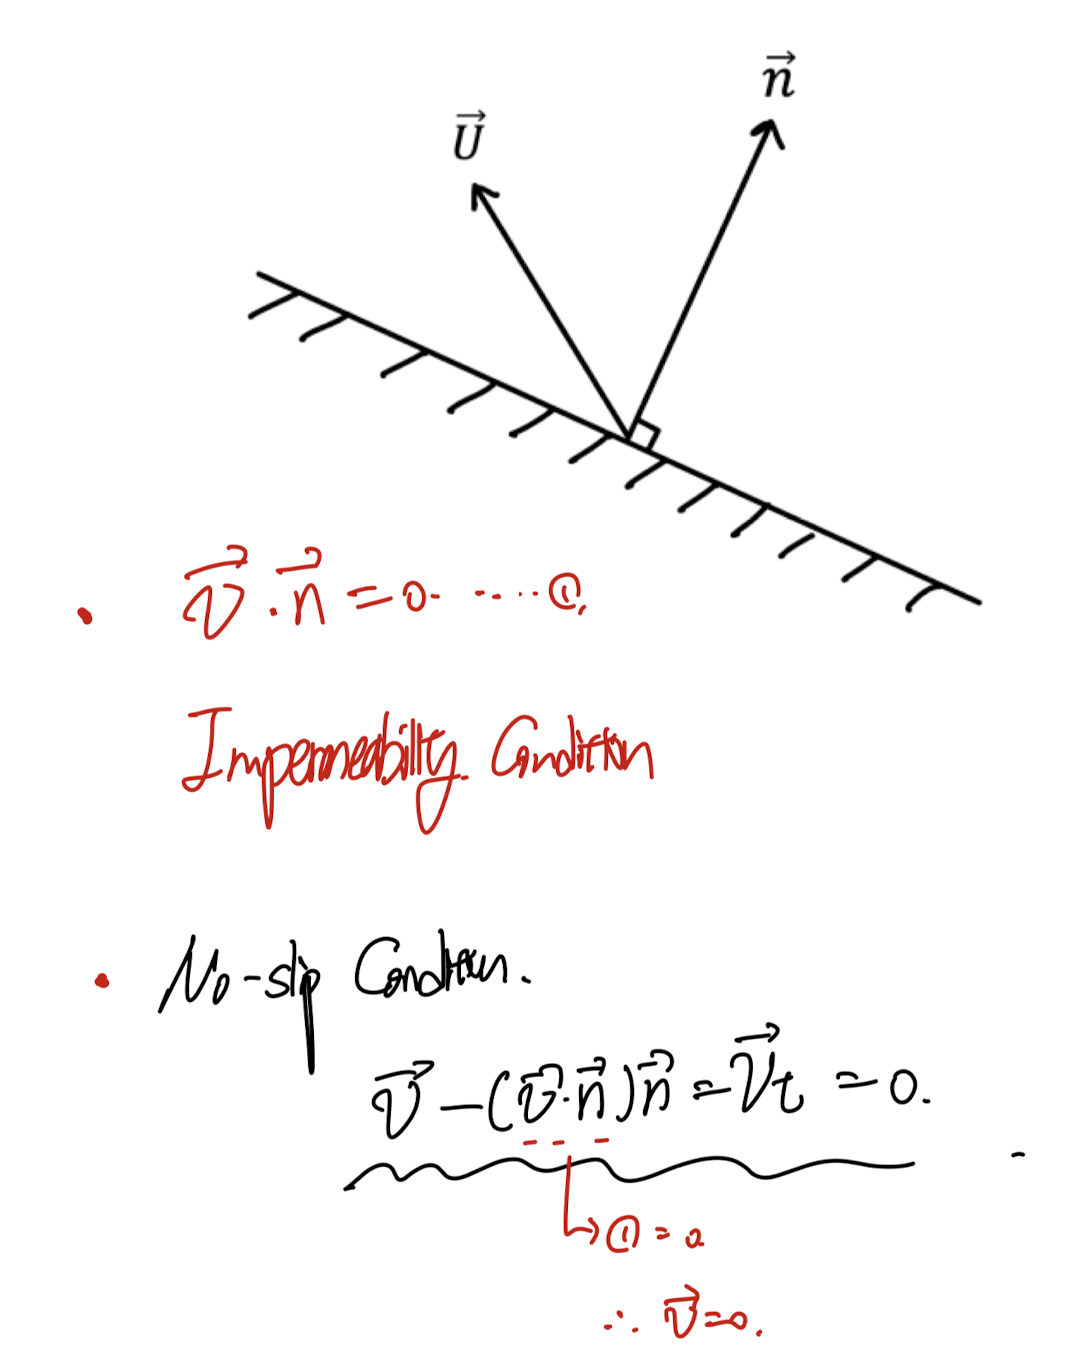 $\vec{n}$
$\vec{U}$
• $\vec{v} \cdot \vec{n} = 0$ ..... ①
Impermeability Condition
• No-slip Condition.
$\vec{v} - (\vec{v} \cdot \vec{n})\vec{n} = \vec{v}_t = 0.$
↳ ① = 0
∴ $\vec{v} = 0.$